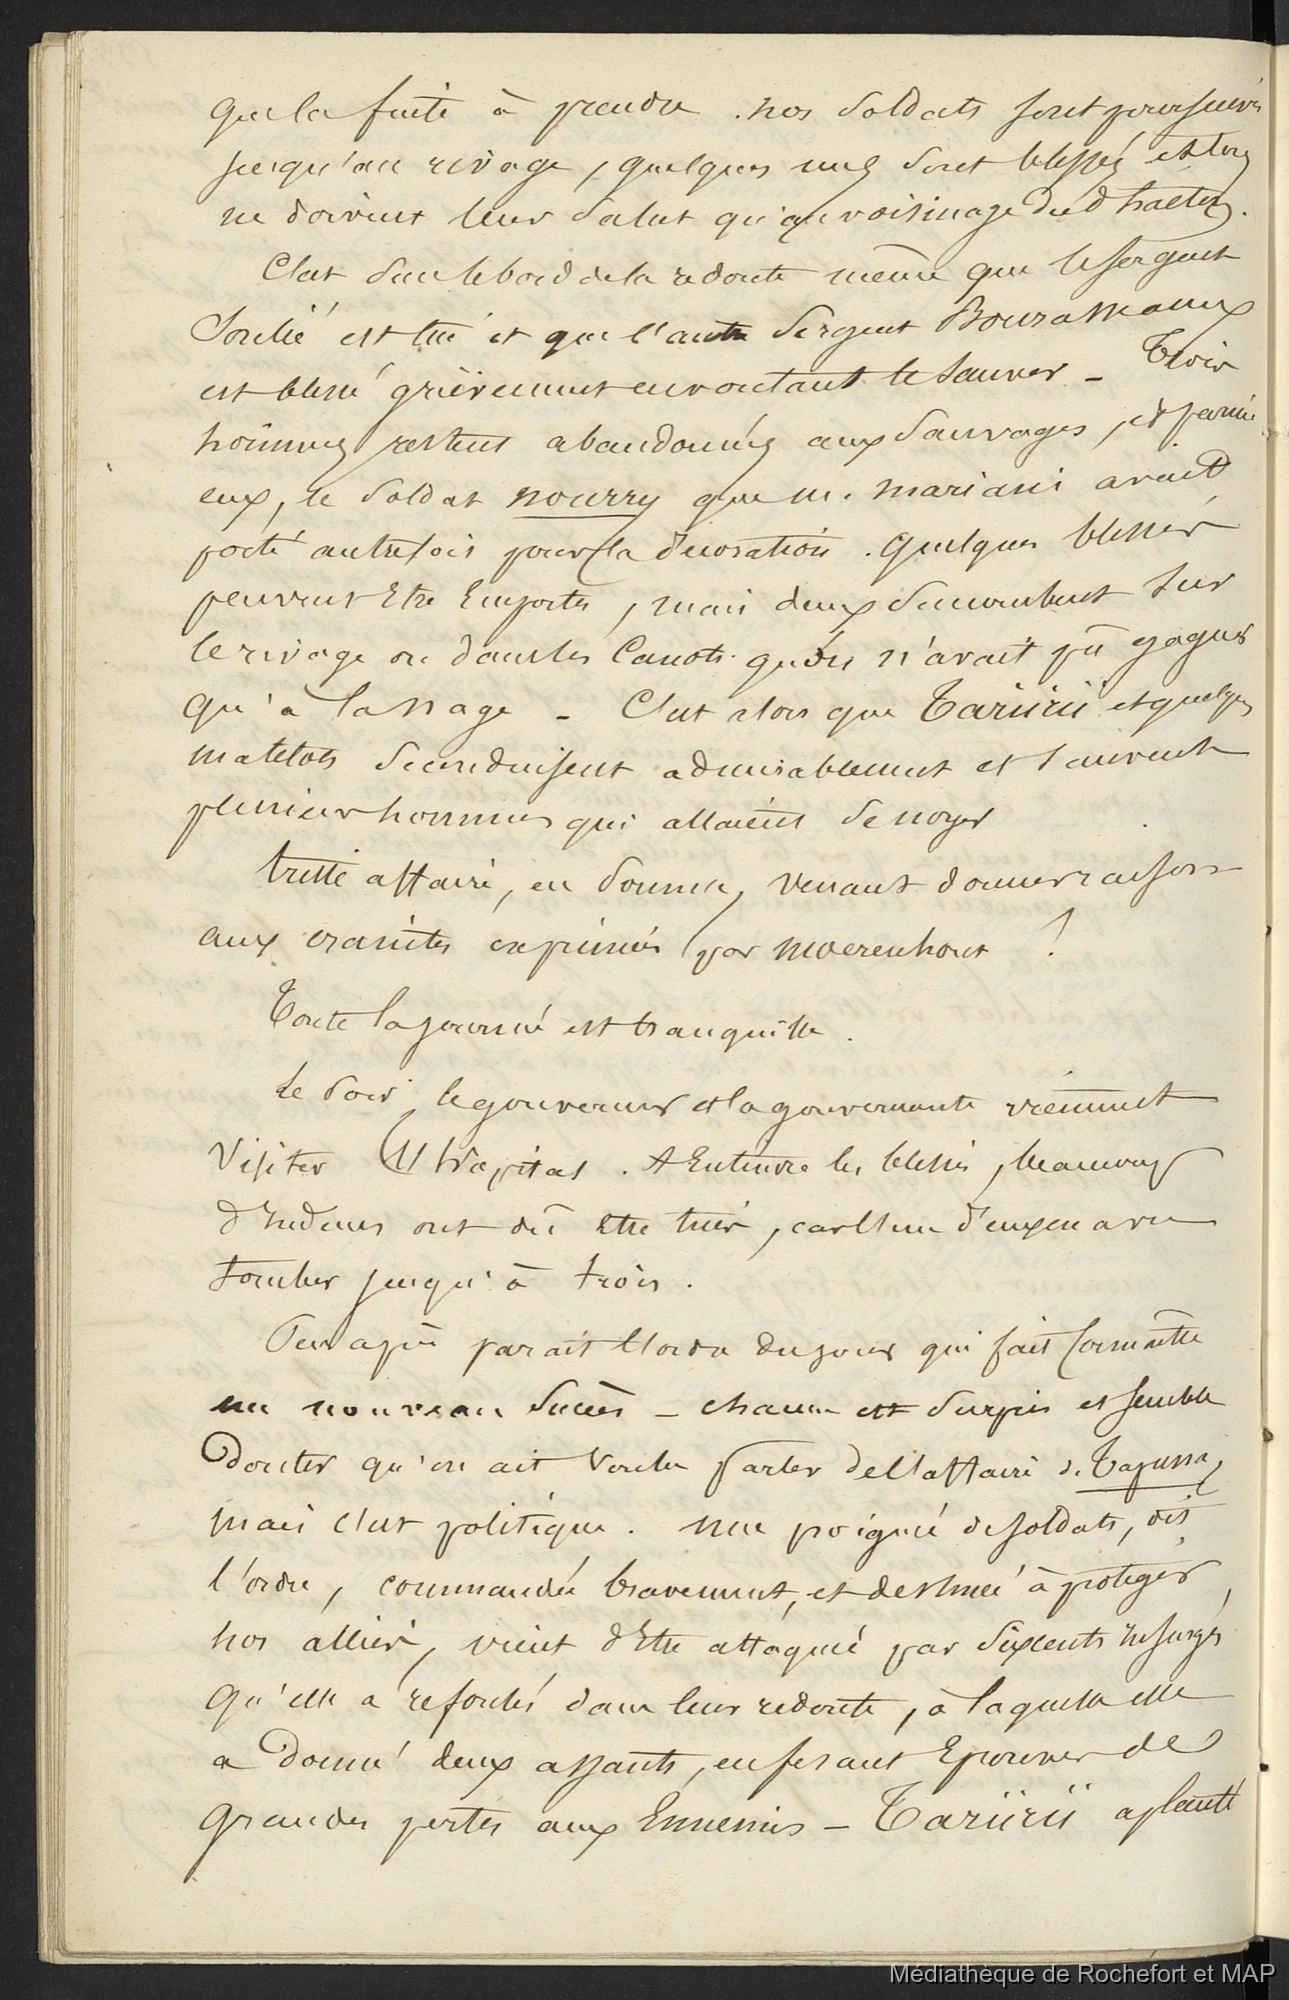 que la fuite à prendre. nos soldats sont poursuivis
jusqu'au rivage, quelques uns sont blessés et tous
ne doivent leur salut qu'au voisinage du
C'est sur le bord de la redoute même que le sergent
Soulié est tué et que l'autre sergent
est blessé grièvement en voulant le sauver _ Trois
hommes restent abandonnés aux sauvages, et parmi
eux, le soldat nourry que m. mariani avait
porté autrefois pour la décoration. quelques blessés
peuvent Etre Emportés, mais deux succombent sur
le rivage ou dans les Canots qu'on n'avait pu gagner
qu'à la nage _ C'est alors que Tariirii et quelques
matelots se conduisent admirablement et sauvent
plusieurs hommes qui allaient se noyer
triste affaire, en somme, venant donner raison
aux craintes exprimées par moerenhout !
Toute la journée est tranquille.
Le soir, le gouverneur et la gouvernante viennent
visiter l'hôpital. A Entendre les blessés, beaucoup
d'Indiens ont dû être tués, car l'un d'eux en a vu
tomber jusqu'à trois.
Peu après parait l'ordre du jour qui fait Connaître
un nouveau succès _ chacun est surpris et semble
douter qu'on ait voulu parler de l'affaire de Tapuna,
mais c'est politique. une poignée de soldats, dit
l'ordre, commandée bravement, et destinée à protéger
nos alliés, vient d'Etre attaquée par six cents Insurgés
qu'elle a refoulés dans leur redoute, à laquelle elle
a donné deux assauts, en fesant Eprouver de
grandes pertes aux Ennemis _ Tariirii
Médiathèque de Rochefort et MAP